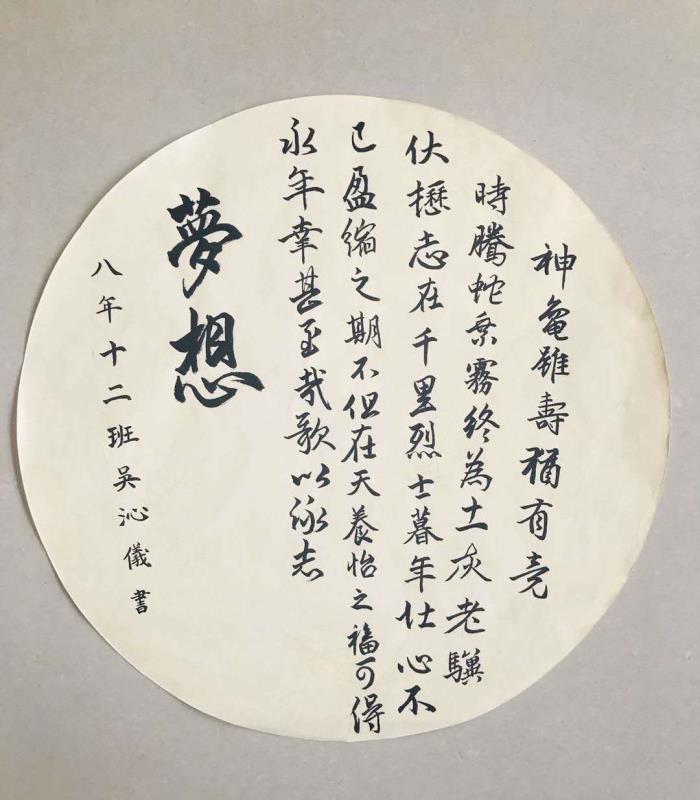 神龜雖壽猶有竟
時騰蛇乘霧終為土灰老驥
伏櫪志在千里烈士暮年仕心不
已盈縮之期不但在天養怡之福可得
永年幸甚至哉歌以詠志
夢想
八年十二班吳沁儀書